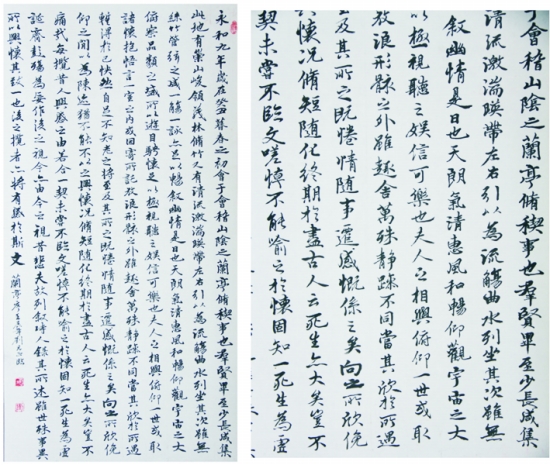 永和九年歲在癸丑暮春之初會于會稽山陰之蘭亭脩稧事也羣賢畢至少長咸集
此地有崇山峻領茂林脩竹又有清流激湍暎帶左右引以為流觴曲水列坐其次雖無
絲竹管弦之盛一觴一詠亦足以暢叙幽情是日也天朗氣清惠風和暢仰觀宇宙之大
俯察品類之盛所以遊目騁懷足以極視聽之娛信可樂也夫人之相與俯仰一世或取
諸懷抱悟言一室之内或因寄所託放浪形骸之外雖趣舍萬殊靜躁不同當其欣於所遇
暫得於己怏然自足不知老之將至及其所之既惓情隨事遷感慨係之矣向之所欣俛
仰之間以為陳迹猶不能不以之興懷況脩短隨化終期於盡古人云死生亦大矣豈不
痛哉每攬昔人興感之由若合一契未嘗不臨文嗟悼不能喻之於懷固知一死生為虛
誕齊彭殤為妄作後之視今亦由今之視昔悲夫故列叙時人錄其所述雖世殊事異
所以興懷其致一也後之攬者亦將有感於斯文
蘭亭序
于會稽山陰之蘭亭脩稧事也羣賢畢至少長咸集
清流激湍暎帶左右引以為流觴曲水列坐其次雖無
叙幽情是日也天朗氣清惠風和暢仰觀宇宙之大
以極視聽之娛信可樂也夫人之相與俯仰一世或取
放浪形骸之外雖趣舍萬殊靜躁不同當其欣於所遇
及其所之既惓情隨事遷感慨係之矣向之所欣俛
懷況脩短隨化終期於盡古人云死生亦大矣豈不
契未嘗不臨文嗟悼不能喻之於懷固知一死生為虛